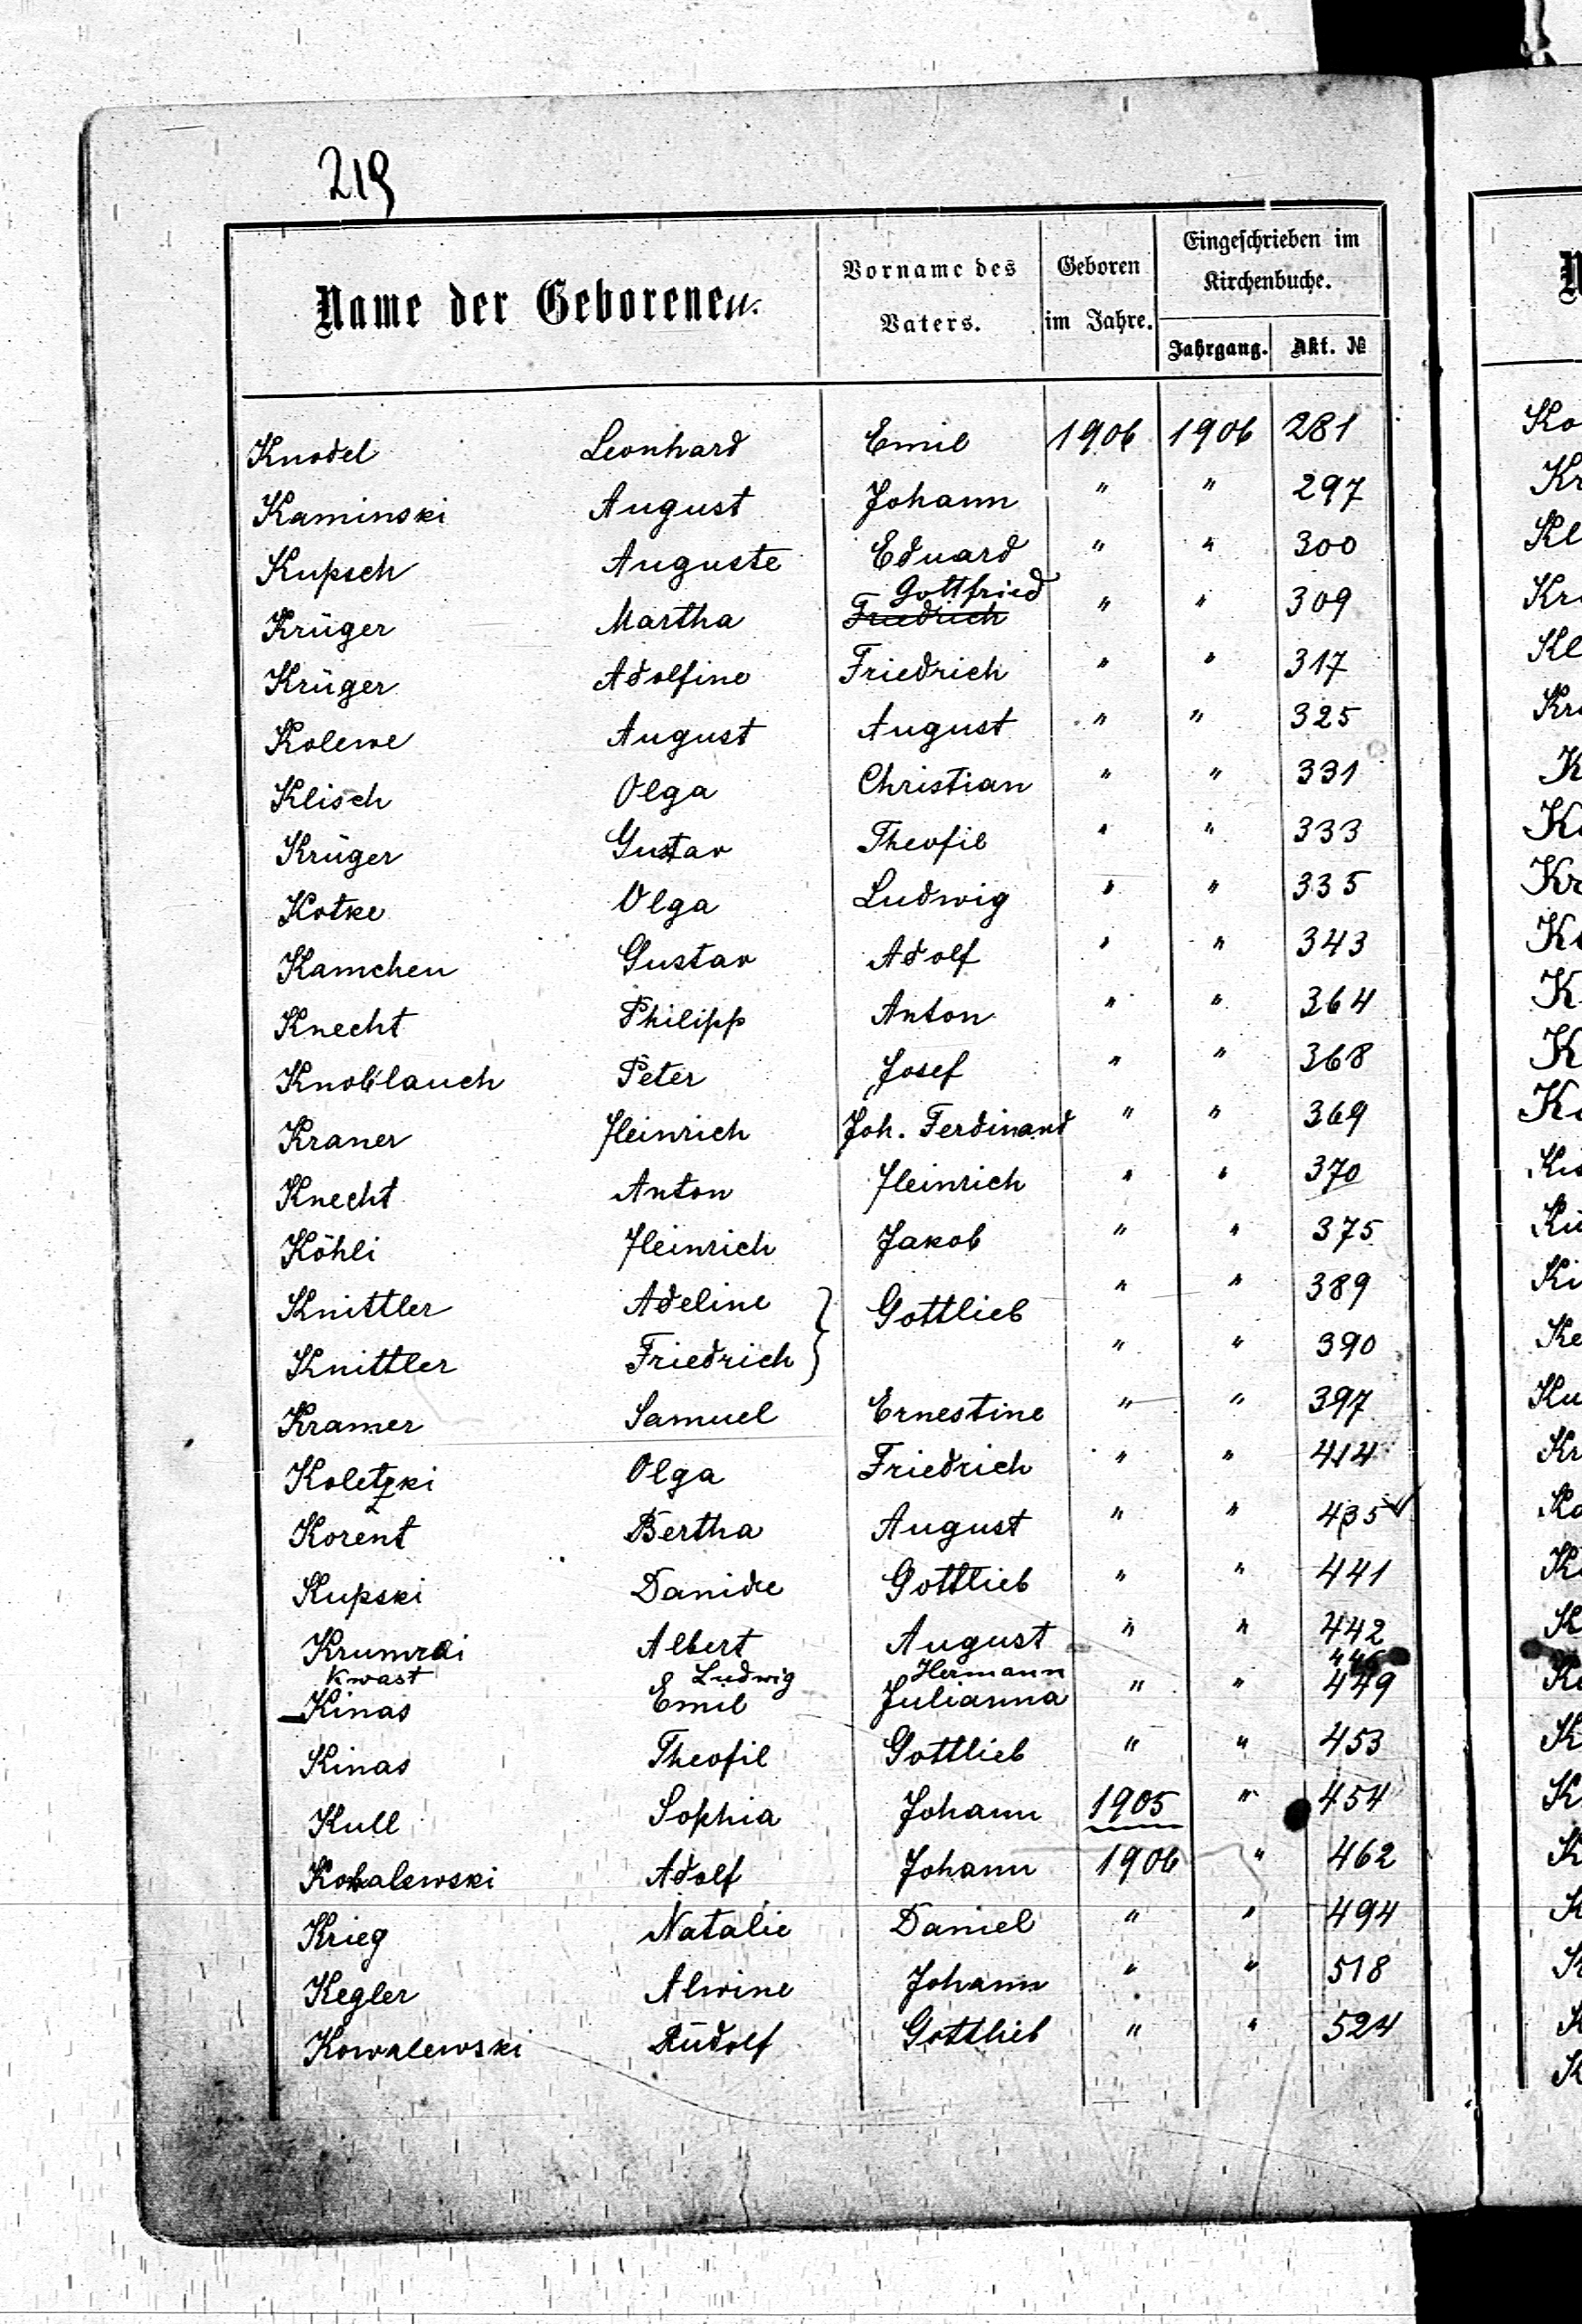 219
Name der Geborenen. Vorname des Vaters. Geboren im Jahre. Eingeschrieben im Kirchenbuche.
Jahrgang. Akt. №
Knodel Leonhard Emil 1906 1906 281
Kaminski August Johann " " 297
Kupsch Auguste Eduard " " 300
Gottfried
Krüger Martha Friedrich " " 309
Krüger Adolfine Friedrich " " 317
Kolewe August August " " 325
Klisch Olga Christian " " 331
Krüger Gustav Theofil " " 333
Kotke Olga Ludwig " " 335
Kamchen Gustav Adolf " " 343
Knecht Philipp Anton " " 364
Knoblauch Peter Josef " " 368
Kraner Heinrich Joh. Ferdinand " " 369
Knecht Anton Heinrich " " 370
Köhli Heinrich Jakob " " 375
Knittler Adeline } Gottlieb " " 389
Knittler Friedrich } " " 390
Kramer Samuel Ernestine " " 397
Koletzki Olga Friedrich " " 414
Korent Bertha August " " 435
Kupski Gottlieb " " 441
Krumrei Albert August " " 442
Kwast Ludwig Hermann 446
Kinas Emil Julianna " " 449
Kinas Theofil Gottlieb " " 453
Kull Sophia Johann 1905 " 454
Kowalewski Adolf Johann 1906 " 462
Krieg Natalie Daniel " " 494
Kegler Alwine Johann " " 518
Kowalewski Rudolf Gottlieb " " 524